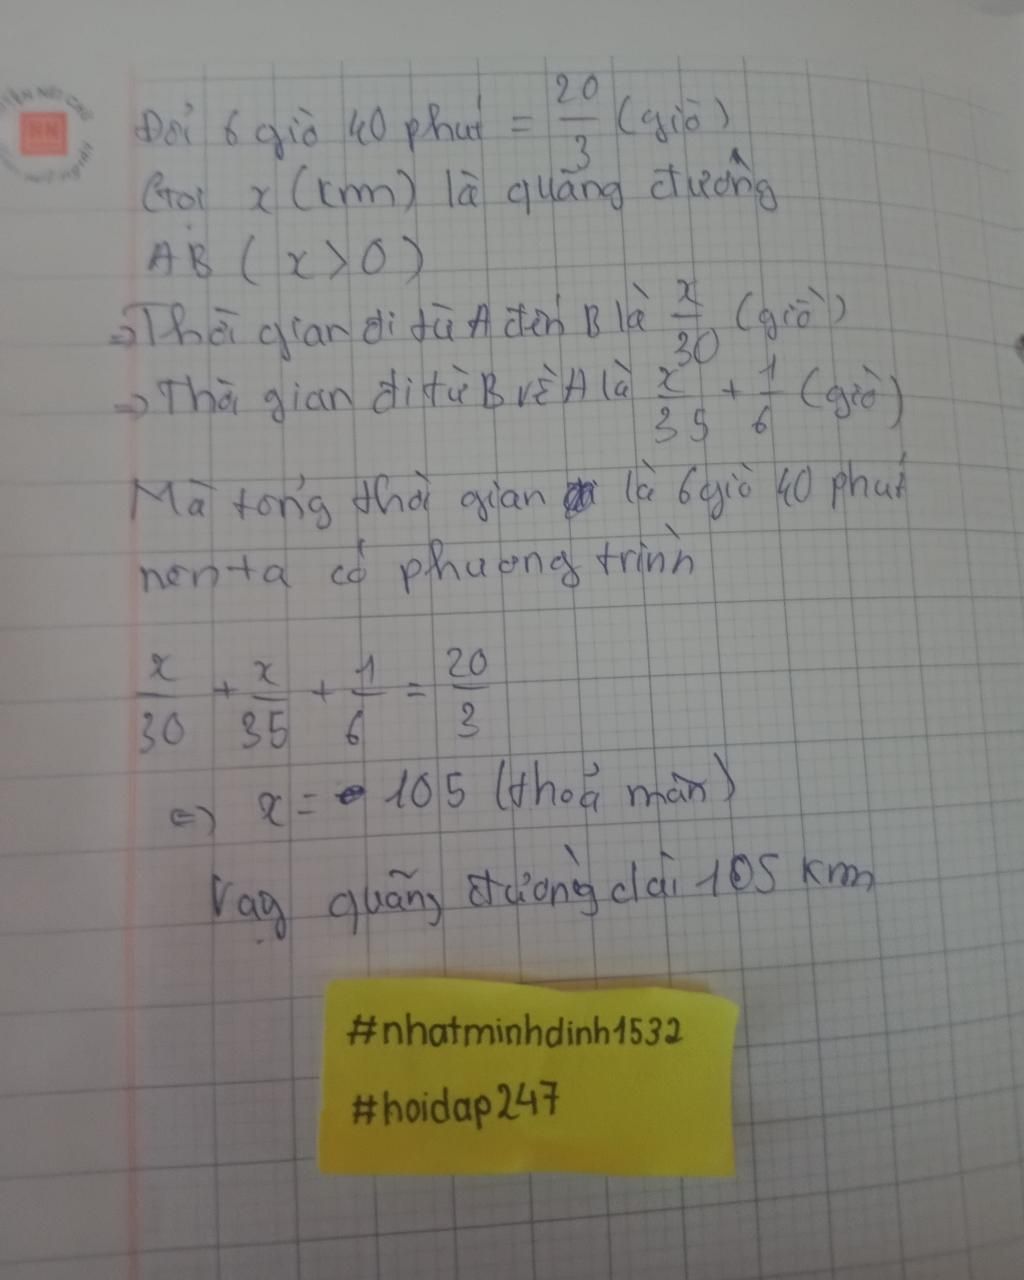 Đổi 6 giờ 40 phút = 20/3 (giờ)
Gọi x (km) là quãng đường
AB ( x > 0 )
⇒ Thời gian đi từ A đến B là x/30 (giờ)
⇒ Thời gian đi từ B về A là x/35 + 1/6 (giờ)
Mà tổng thời gian là 6 giờ 40 phút
nên ta có phương trình
x/30 + x/35 + 1/6 = 20/3
⇔ x = 105 (thoả mãn)
Vậy quãng đường dài 105 km
#nhatminhdinh1532
#hoidap247